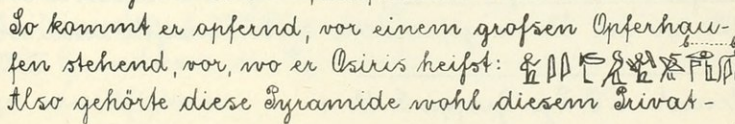 So kommt er opfernd, vor einem großsen Opferhau-
fen stehend, vor, wo er Osiris heißst:
Also gehörte diese Pyramide wohl diesem Privat-